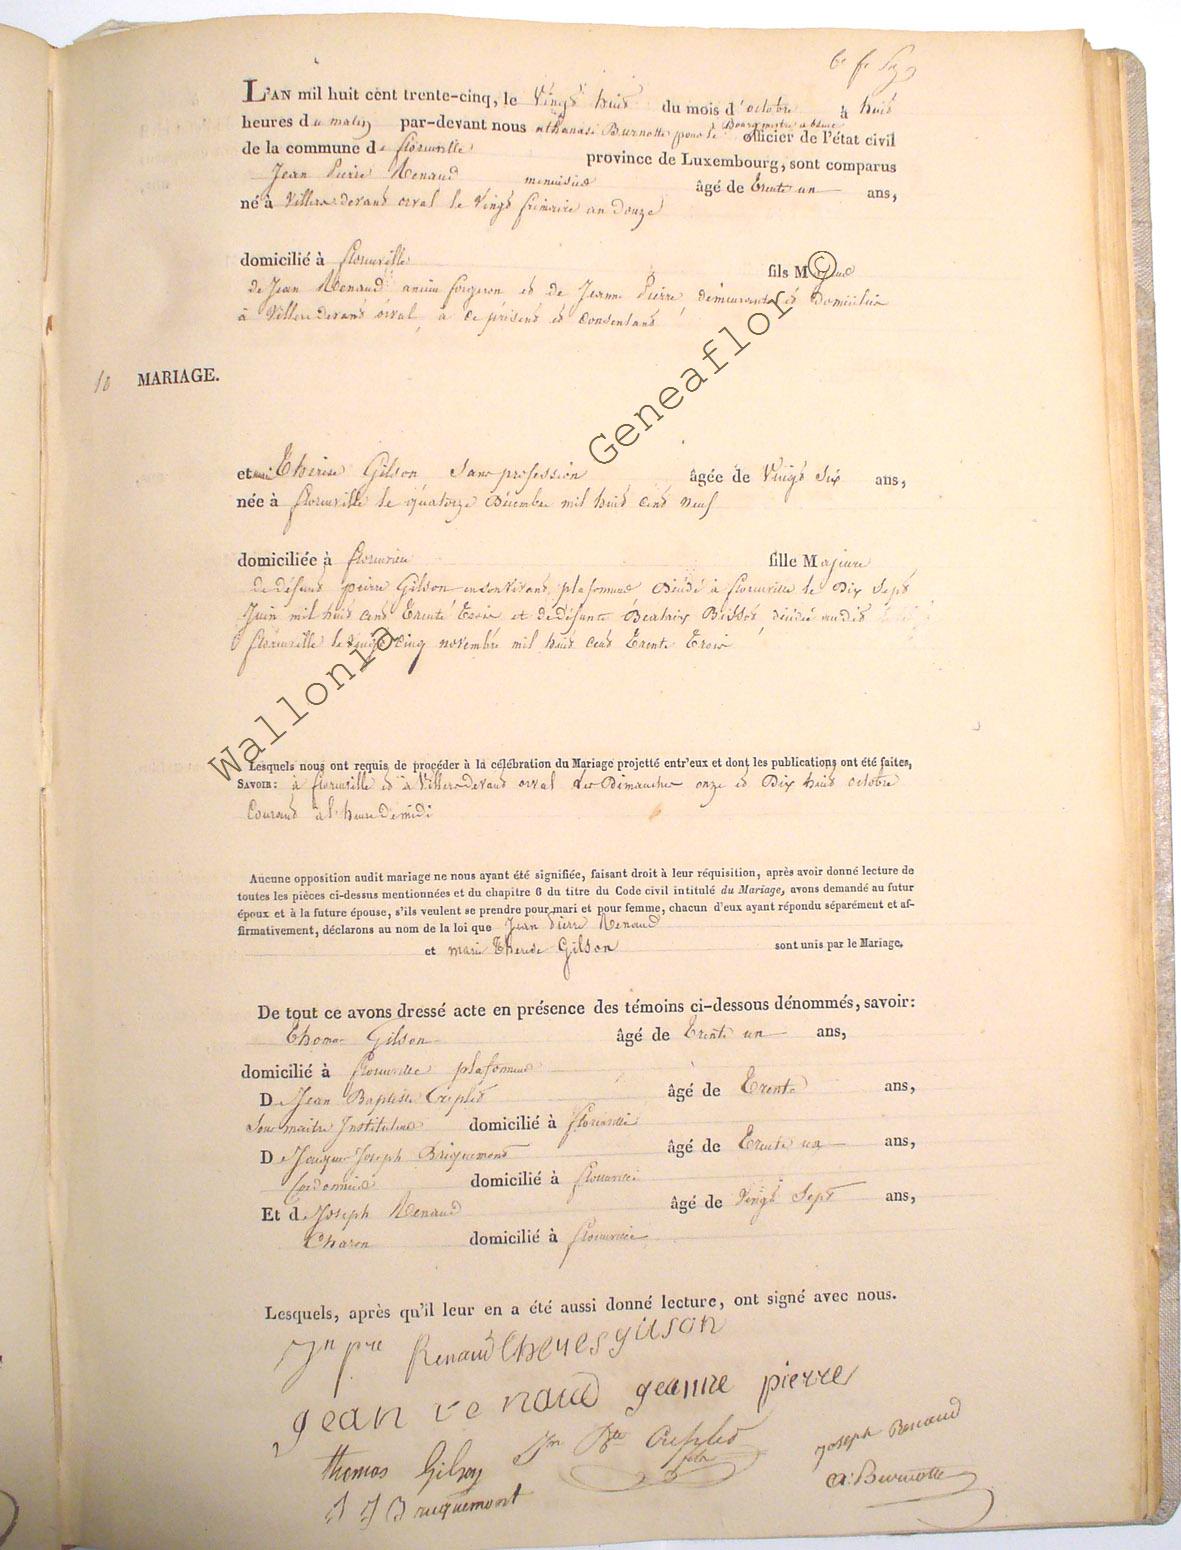 6e f.
L'AN mil huit cent trente-cinq, le vingt huit du mois d'octobre à huit
heures du matin par-devant nous athanase Burnotte pour le Bourgmestre absent officier de l'état civil
de la commune de florenville province de Luxembourg, sont comparus
Jean Pierre Renaud menuisier âgé de trente un ans,
né à Villers devant orval le vingt frimaire an douze
domicilié à florenville fils Majeur
de Jean Renaud ancien forgeron et de Jeanne Pierre, demeurants et domiciliés
à Villers devant orval, à ce présent et consentant
10 MARIAGE.
et marie Thérèse Gilson Sans profession âgée de vingt six ans,
née à florenville le quatorze Décembre mil huit cent neuf
domiciliée à florenville fille Majeure
de défunt pierre Gilson en son vivant plafonneur Décédé à florenville le Dix Sept
Juin mil huit cent trente trois et de défunte Béatrix Bissot décédée audit
florenville le vingt cinq novembre mil huit cent trente trois
Lesquels nous ont requis de procéder à la célébration du Mariage projetté entr'eux et dont les publications ont été faites,
SAVOIR: à florenville et à Villers devant orval les Dimanches onze et Dix huit octobre
Courant à l'heure de midi
Aucune opposition audit mariage ne nous ayant été signifiée, faisant droit à leur réquisition, après avoir donné lecture de
toutes les pièces ci-dessus mentionnées et du chapitre 6 du titre du Code civil intitulé du Mariage, avons demandé au futur
époux et à la future épouse, s'ils veulent se prendre pour mari et pour femme, chacun d'eux ayant répondu séparément et af-
firmativement, déclarons au nom de la loi que Jean Pierre Renaud
et marie Therese Gilson sont unis par le Mariage.
De tout ce avons dressé acte en présence des témoins ci-dessous dénommés, savoir:
Thomas Gilson âgé de trente un ans,
domicilié à florenville plafonneur
De Jean Baptiste Créplet âgé de trente ans,
Sous maitre Instituteur domicilié à florenville
De Jacques Joseph Briquemont âgé de trente un ans,
Cordonnier domicilié à florenville
Et de Joseph Renaud âgé de vingt Sept ans,
Charon domicilié à florenville
Lesquels, après qu'il leur en a été aussi donné lecture, ont signé avec nous.
Jn pre Renaud Theres gilson
jean renaud jeanne pierre
thomas Gilson Jn Bte Créplet fils Joseph Renaud
J J Bruquemont A: Burnotte
Wallonia Geneaflor ©